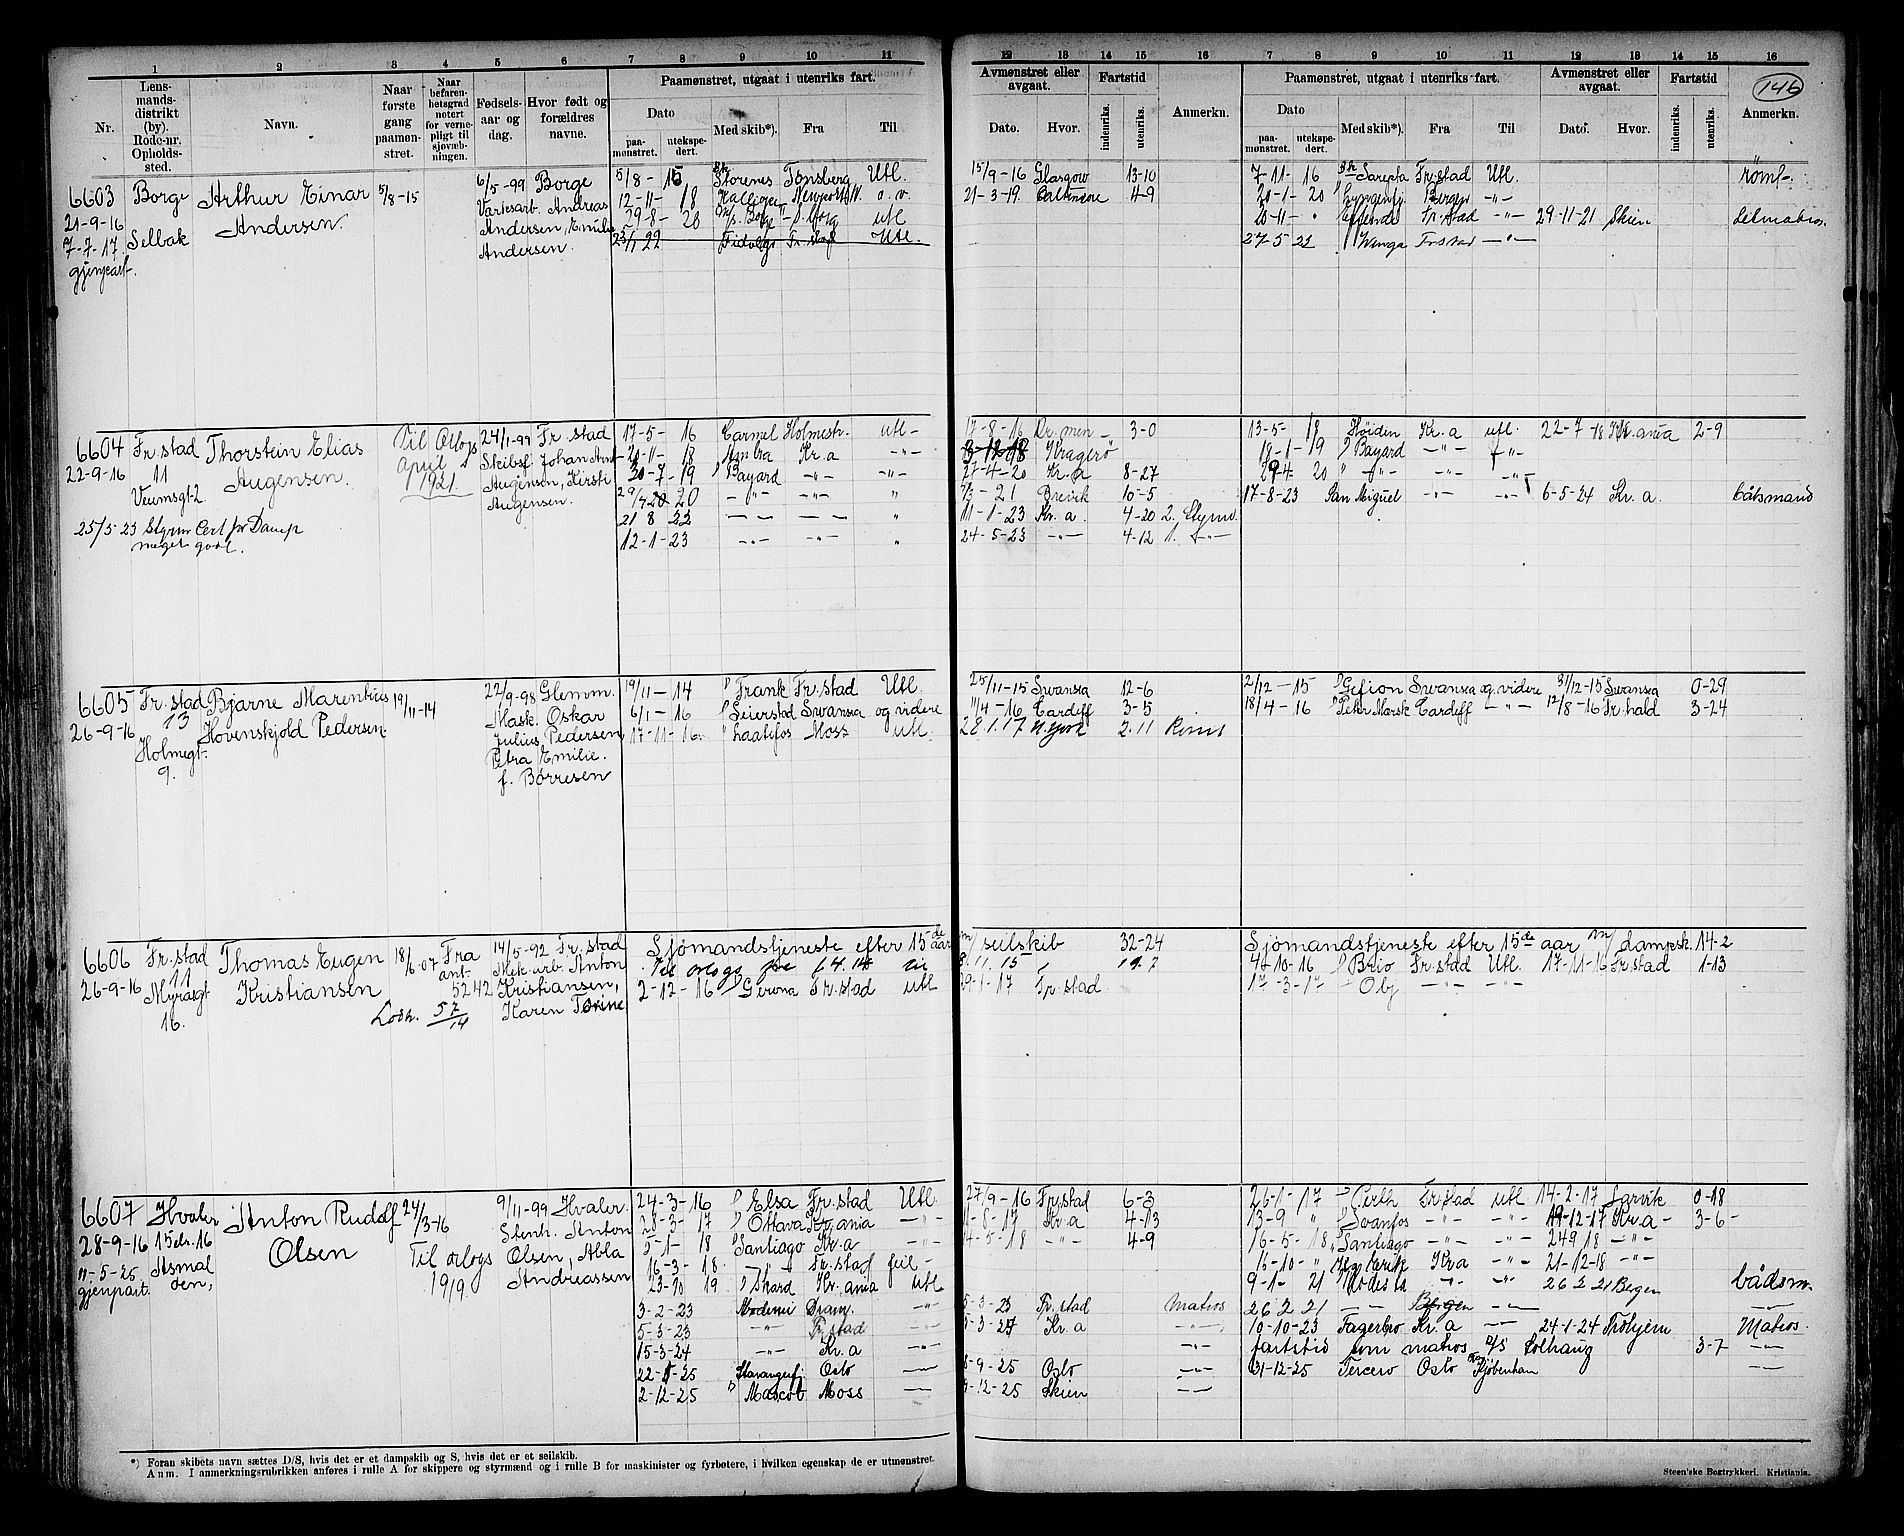 1 2 3 4 5 6 7 8 9 10 11
12 13 14 15 16 7 8 9 10 11 12 13 14 15 16
146
Nr.
Lens-
mands-
distrikt
(by).
Rode-nr.
Opholds-
sted.
Navn.
Naar
første
gang
paamøn-
stret.
Naar
befaren-
hetsgrad
notert
for verne-
pligt til
sjøvæb-
ningen.
Fødsels-
aar og
dag.
Hvor født og
forældres
navne.
Paamønstret, utgaat i utenriks fart.
Dato
paa-
mønstret.
utekspe-
dert.
Med skib*).
Fra
Til
Avmønstret eller
avgaat.
Dato.
Hvor.
Fartstid
indenriks.
utenriks.
Anmerkn.
Paamønstret, utgaat i utenriks fart.
Dato
paa-
mønstret.
utekspe-
dert.
Med skib*).
Fra
Til
Avmønstret eller
avgaat.
Dato.
Hvor.
Fartstid
indenriks.
utenriks.
Anmerkn.
6603 Borge Arthur Einar 5/8-15 6/5-99 Borge
21-9-16 Andersen. Andreas
7-7-17 Selbak Andersen, Emilie
gjenpart. Andersen.
5/8-15 Storenes Tønsberg Utl. 15/9-16 Glasgow 13-10 7-11-16 Sarepta Fr.stad Utl. rømt.
12-11-18 21-3-19. 4-9 20-1-20 Bergen -"-
29-8-20 Borge utl 20-11- " Fr.stad -"- 29-11-21 Skien
23/1 22 Fr.stad Utl. 27-5-22 Fr.stad -"-
6604 Fr.stad Thorstein Elias Til Orlogs 24/1-99 Fr.stad
22-9-16 11 Augensen. April Skibsf. Johan
Veumsgt-2 1921 Augensen, Kirsti
Augensen.
25/5-23 Styrm Cert for Damp
meget godt.
17-5-16 Carmel Holmestr. utl- 17-8-16 Dr.men 3-0 13-5-18 Høiden Kr.a utl. 22-7-18 Kr.ania 2-9
20-11-18 Kr.a -"- 3-12-18 Kragerø 18-1-19 Bayard -"- -"-
30-7-19 Bayard -"- -"- 27-4-20 Kr.a 8-27 29-4-20 " -"- -"-
29/4-20 20 -"- -"- " -21 Brevik 10-5 17-8-23 San Miguel -"- -"- 6-5-24 Kr.a. båtsmand
21 8 22 -"- -"- " 11-1-23 Kr.a. 4-20 2. Styrm.
12-1-23 -"- -"- " 24-5-23 -"- 4-12 1. -"-
6605 Fr.stad Bjarne Marentius 19/11-14 22/9-98 Glemm.
26-9-16 13 Hovenskjold Pedersen. Mask. Oskar
Holmegt. Julius Pedersen,
9. Petra Emilie.
f. Børresen
19/11-14 Frank Fr.stad Utl. 25/11-15 Swansea 12-6 2/12-15 Gefion Swansea og videre 31/12-15 Swansea 0-29
6/1-16 Seierstad Swansea og videre 11/4-16 Cardiff 3-5 18/4-16 Peter Mærsk Cardiff -"- 12/8-16 Fr.hald 3-24
17-11-16 Laatefos Moss utl. 28.1.17 N.York 2.11 Rømt
6606 Fr.stad Thomas Eugen 18/6-07 Fra 14/5-92 Fr.stad
26-9-16 11 Kristiansen ant. Mek.arb. Anton
Myrasgt 5242 Kristiansen,
16. 57/14 Karen
Sjømandstjeneste efter 15de aar m/ seilskib 32-24 Sjømandstjeneste efter 15de aar m/ dampsk. 14-2
Til orlogs 11.15 19.7 4-10-16 Brio Fr.stad Utl. 17-11-16 Fr.stad 1-13
2-12-16 Gerona Fr.stad utl 29-1-17 Fr.stad 17-3-17 Obj -"- -"-
6607 Hvaler Anton Rudolf 24/3-16 9/11-99 Hvaler.
28-9-16 Olsen Til orlogs Stenh. Anton
11-5-25 Asmal 19/9. Olsen, Abla
gjenpart. øen, Andreassen
24-3-16 Elsa Fr.stad Utl. 27/9-16 Fr.stad 6-3 26-1-17 Perth Fr.stad utl 14-2-17 Larvik 0-18
28-3-17 Ottava Kr.ania -"- 1-8-17 Kr.a 4-13 13-9 " Svanfos -"- -"- 19-12-17 Kr.a- 3-6-
5-1-18 Santiago Kr.a -"- 14-5-18 -"- 4-9 16-5-18 Santiago -"- -"- 24 9 18 -"-
16-3-18 -"- Fr.stad feil- 16-10- " Kr.a -"- 21-12-18 -"-
23-10 19 Skard Kr.ania utl 9-1-21 Modesta -"- -"- 26 2 21 Bergen bådsm.
3-2-23 Modemi Dram. -"- 5-3-23 Fr.stad Matros 26 2 21 -"- Bergen -"- -"-
5-3-23 -"- Fr.stad -"- Kr.a -"- 10-10-23 Fagerbro Kr.a -"- 24-1-24 Matros.
15-3-24 -"- Kr.a -"- fartstid som matros D/S Solhaug 3-7 -"-
Stavangerfj. Oslo -"- 8-9-25 Oslo -"- 31-12-25 Tercero Oslo Kjøbenhavn -"-
2-12-25 Mascot Moss -"- -12-25 Skien -"-
*) Foran skibets navn sættes D/S, hvis det er et dampskib og S, hvis det er et seilskib.
Anm. I anmerkningsrubrikken anføres i rulle A for skippere og styrmænd og i rulle B for maskinister og fyrbøtere, i hvilken egenskap de er utmønstret.
Steen'ske Bogtrykkeri. Kristiania.